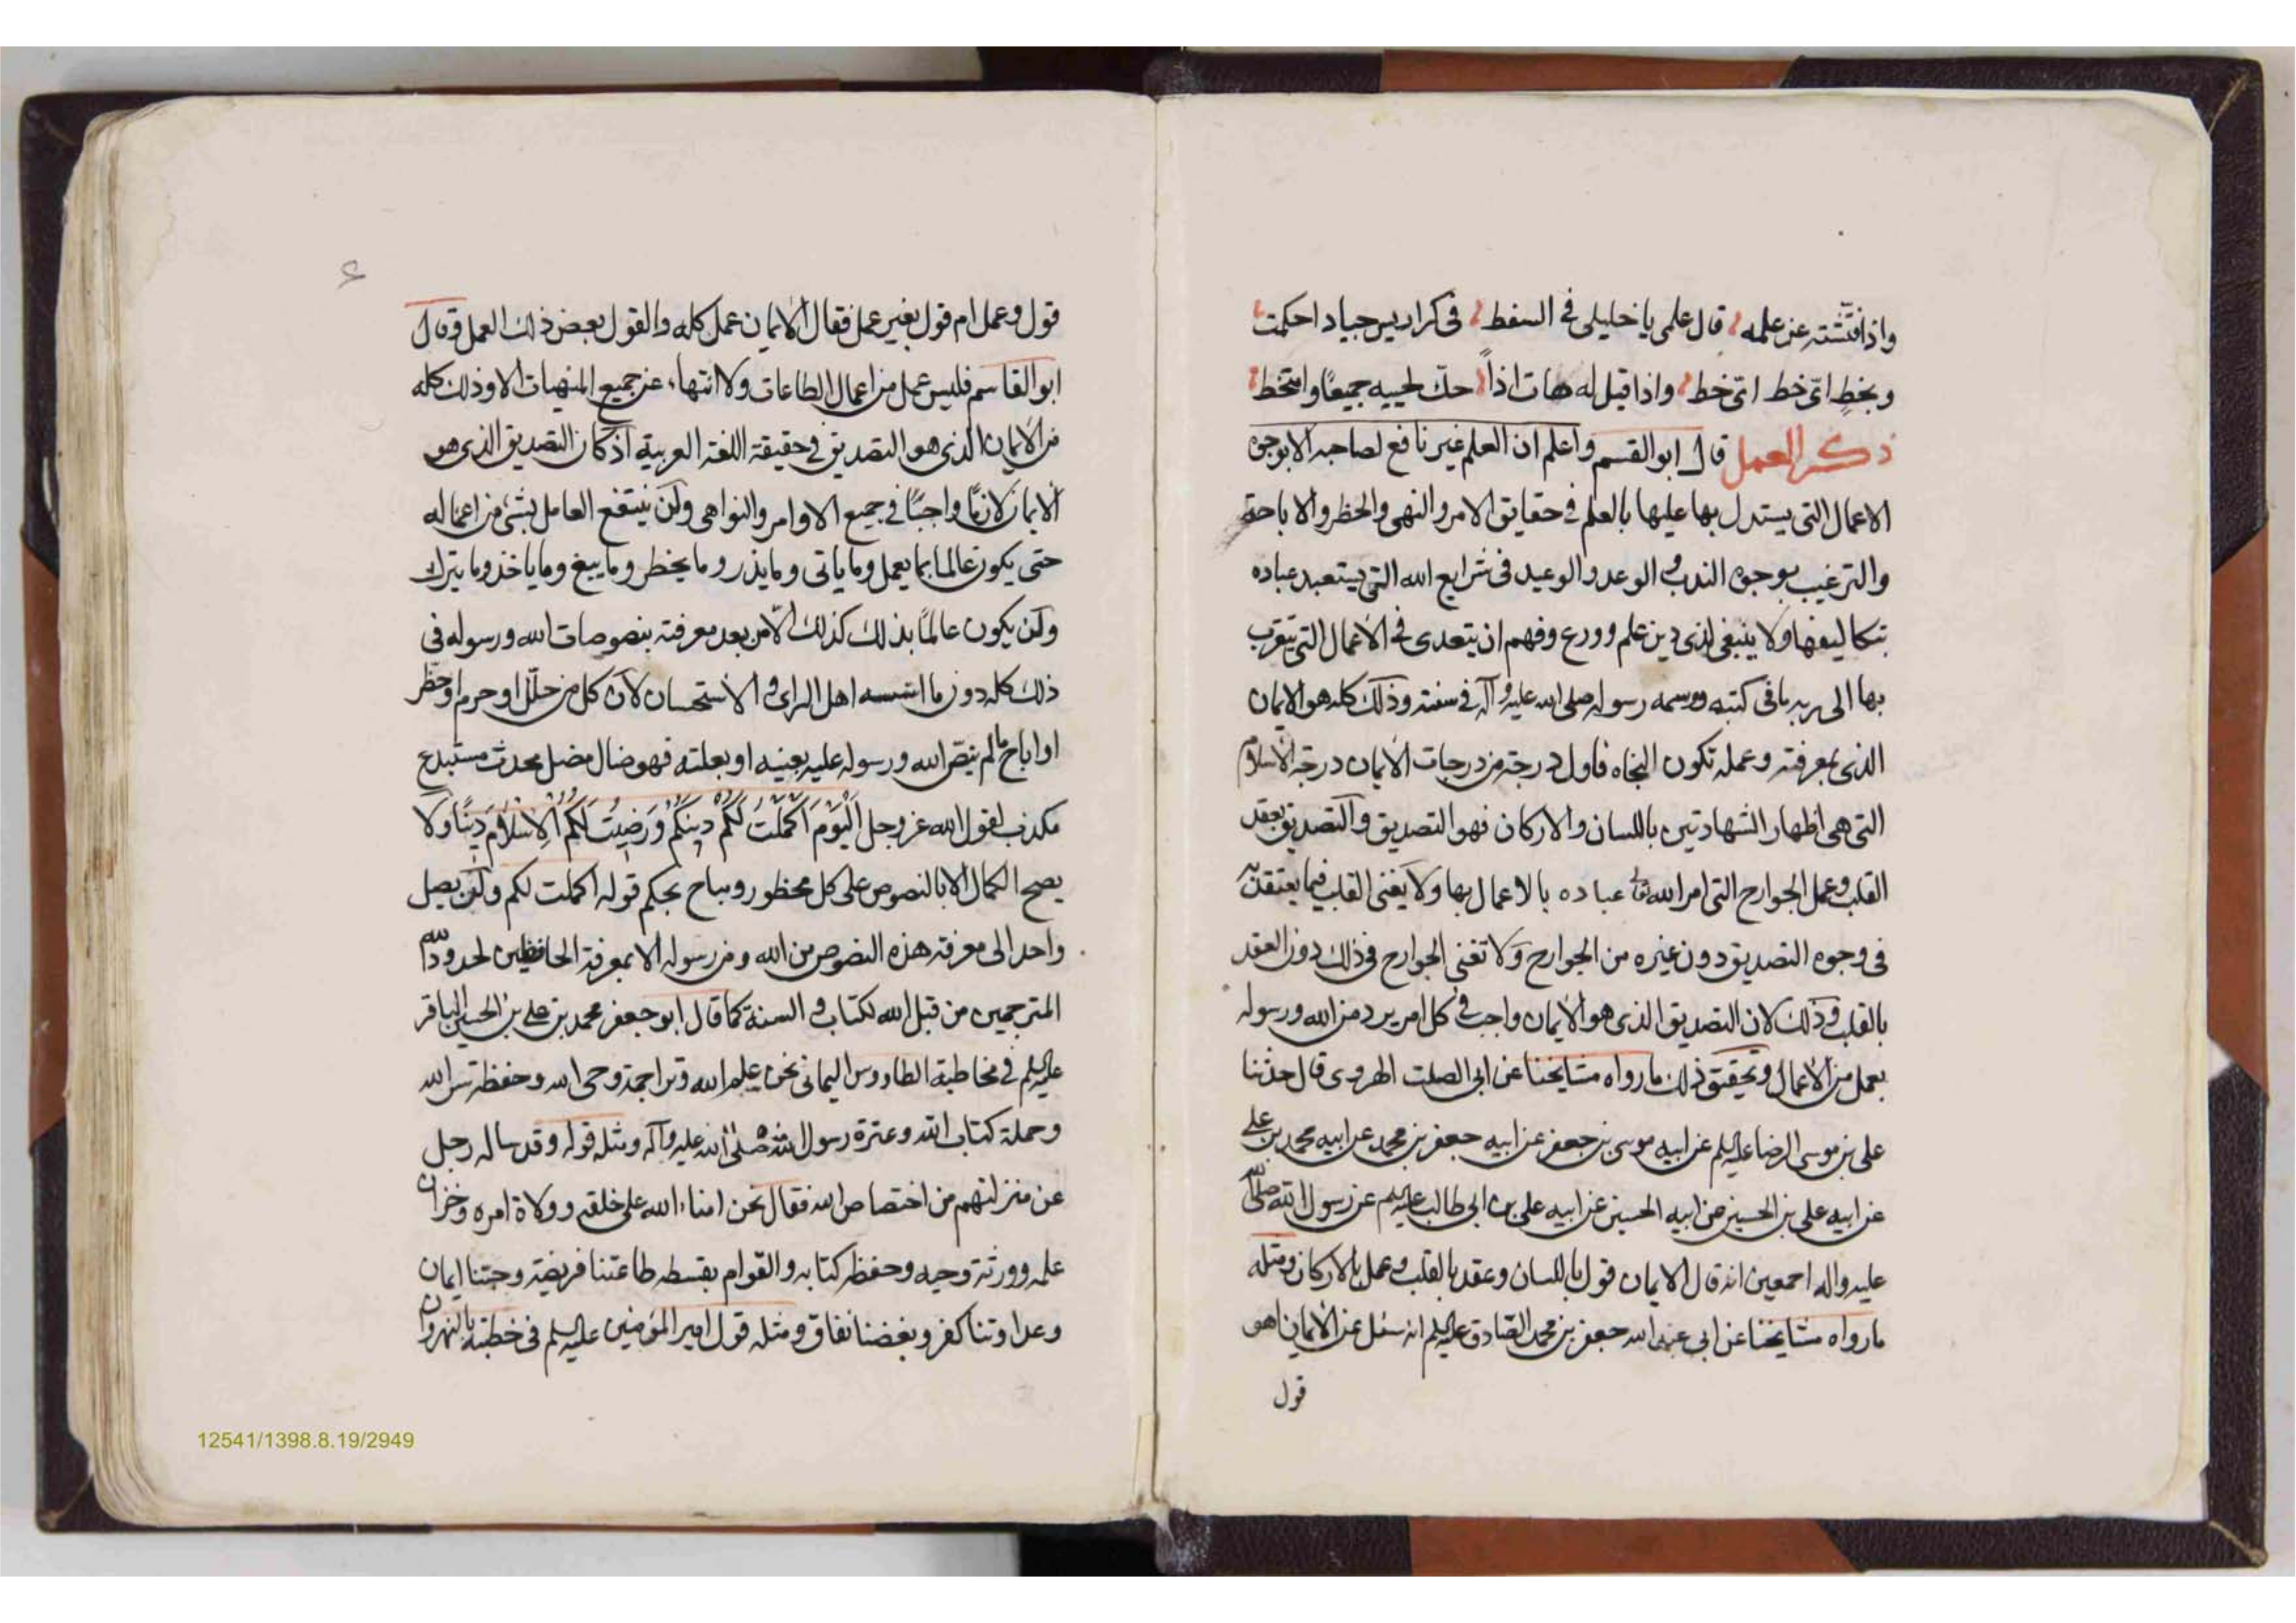 واذا فتشته عن علمه قال علمى يا خليلى فى السفط فى كراريس جياد احكمت
وبخط اىّ خط اىّ خط واذا قيل له هات اذاً حكّ لحييه جميعًا وامتخط
ذكر العمل قال ابو القسم واعلم ان العلم غير نافع لصاحبه الا بوجوه
الاعمال التى يستدل بها عليها بالعلم فى حقايق الامر والنهى والحظر والاباحة
والترغيب بوجوه الندب والوعد والوعيد فى شرايع الله التى يستعبد عباده
بتكاليفها ولا ينبغى لذى دين علم وورع وفهم ان يتعدى فى الاعمال التى يتقرب
بها الى ربه ما فى كتبه ورسمه رسوله صلى الله عليه وآله فى سنته وذلك كله هو الايمان
الذى بمعرفته وعمله تكون النجاه فاول درجة من درجات الايمان درجة الاسلام
التى هى اظهار الشهادتين باللسان والاركان فهو التصديق والتصديق بعقد
القلب وعمل الجوارح التى امر الله تعالى عباده بالاعمال بها ولا يغنى القلب فيما يعتقد به
فى وجوه التصديق دون غيره من الجوارح ولا تغنى الجوارح فى ذلك دون العقد
بالقلب وذلك لان التصديق الذى هو الايمان واجب فى كل امر يرد من الله ورسوله
بعمل من الاعمال وتحقيق ذلك ما رواه مشايخنا عن ابى الصلت الهروى قال حدثنا
على بن موسى الرضا عليه السلم عن ابيه موسى بن جعفر عن ابيه جعفر بن محمد عن ابيه محمد بن على
عن ابيه على بن الحسين عن ابيه الحسين عن ابيه على بن ابى طالب عليهم عن رسول الله صلى الله
عليه واله اجمعين انه قال الايمان قول باللسان وعقد بالقلب وعمل بالاركان ومثله
ما رواه مشايخنا عن ابى عبد الله جعفر بن محمد الصّادق عليه السلم انه سئل عن الايمان اهو
قول
۶
قول وعمل ام قول بغير عمل فقال الايمان عمل كله والقول بعض ذلك العمل وقال
ابو القاسم فليس عمل من اعمال الطاعات ولا انتهاء عن جميع المنهيات الا وذلك كله
من الايمان الذى هو التصديق فى حقيقة اللغة العربية اذ كان التصديق الذى هو
الايمان لازمًا واجبًا فى جميع الاوامر والنواهى ولن ينتفع العامل بشئ من اعماله
حتى يكون عالما بما يعمل وما ياتى وما يذر وما يحظر وما يبيغ وما ياخذ وما يترك
ولن يكون عالمًا بذلك كذلك الّا من بعد معرفته بنصوصات الله ورسوله فى
ذلك كله دون ما اسسه اهل الراى والاستحسان لان كل من حلّل او حرم او حظر
او اباح ما لم ينصّ الله ورسوله عليه بعينه او بعلته فهو ضال مضل محدث مستبدع
مكذب لقول الله عز وجل اَلْيَوْمَ اَكْمَلْتُ لَكُمْ دِينَكُمْ وَرَضِيتُ لَكُمُ الْاِسْلَامَ دِينًا ولا
يصح الكمال الا بالنصوص على كل محظور ومباح بحكم قوله اكملت لكم ولن يصل
واحد الى معرفة هذه النصوص من الله ومن رسوله الا بمعرفة الحافظين لحدود الله
المترجمين من قبل الله لكتاب والسنة كما قال ابو جعفر محمد بن على بن الحسين الباقر
عليه السلم فى مخاطبة الطاووس اليمانى نحن علم الله وتراجمة وحى الله وحفظة سر الله
وحملة كتاب الله وعترة رسول الله صلى الله عليه وآله ومثله قوله وقد ساله رجل
عن منزلتهم من اختصاص الله فقال نحن امناء الله على خلقه وولاة امره وخزان
علمه وورثة وحيه وحفظه كتابه والقوام بقسطه طاعتنا فريضة وحبنا ايمان
وعداوتنا كفر وبغضنا نفاق ومثله قول امير المؤمنين عليه السلم فى خطبته بالنهروان
12541/1398.8.19/2949